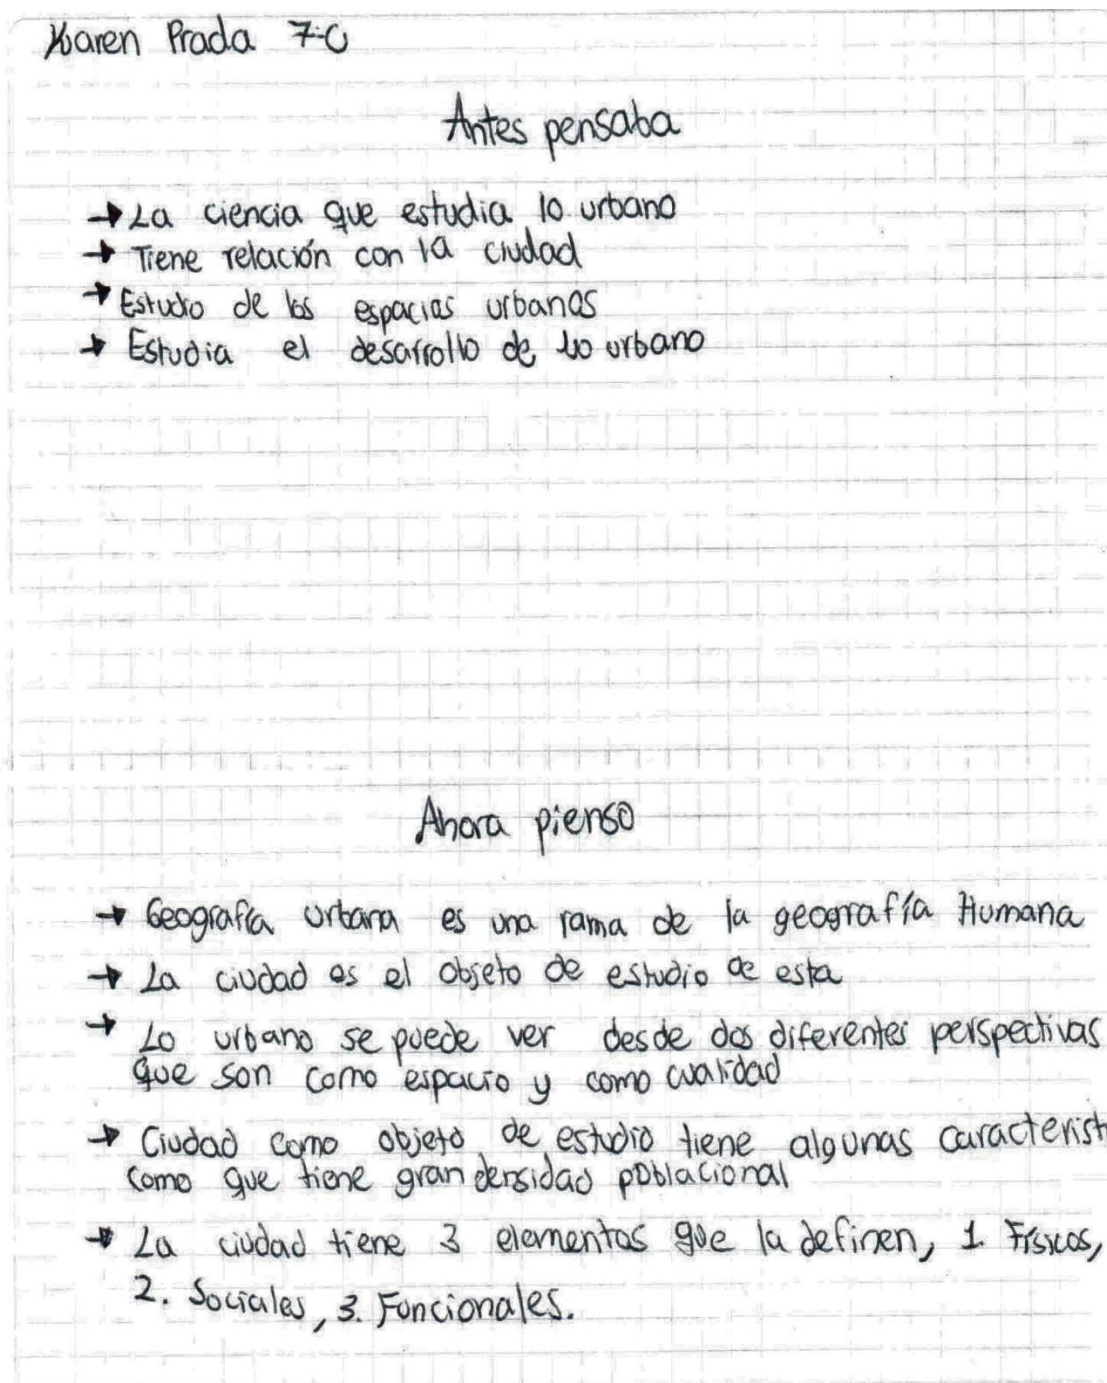 Karen Prada 7-C
Antes pensaba
→ La ciencia que estudia lo urbano
→ Tiene relación con la ciudad
→ Estudio de los espacios urbanos
→ Estudia el desarrollo de lo urbano
Ahora pienso
→ Geografía urbana es una rama de la geografía Humana
→ La ciudad es el objeto de estudio de esta
→ Lo urbano se puede ver desde dos diferentes perspectivas
que son como espacio y como cualidad
→ Ciudad como objeto de estudio tiene algunas caracterist
como que tiene gran densidad poblacional
→ La ciudad tiene 3 elementos que la definen, 1. Físicos,
2. Sociales, 3. Funcionales.